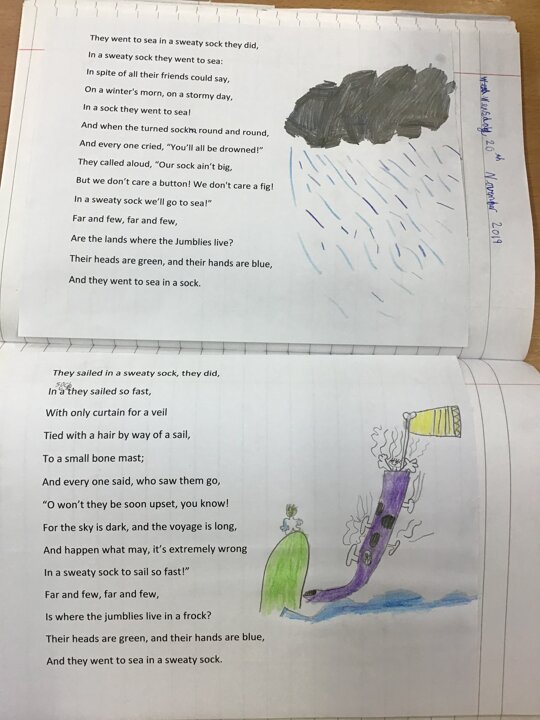 They went to sea in a sweaty sock they did,
In a sweaty sock they went to sea:
In spite of all their friends could say,
On a winter's morn, on a stormy day,
In a sock they went to sea!
And when the turned sockn round and round,
And every one cried, "You'll all be drowned!"
They called aloud, "Our sock ain't big,
But we don't care a button! We don't care a fig!
In a sweaty sock we'll go to sea!"
Far and few, far and few,
Are the lands where the Jumblies live?
Their heads are green, and their hands are blue,
And they went to sea in a sock.
Wednesday 20th November 2019
They sailed in a sweaty sock, they did,
In a sock they sailed so fast,
With only curtain for a veil
Tied with a hair by way of a sail,
To a small bone mast;
And every one said, who saw them go,
"O won't they be soon upset, you know!
For the sky is dark, and the voyage is long,
And happen what may, it's extremely wrong
In a sweaty sock to sail so fast!"
Far and few, far and few,
Is where the jumblies live in a frock?
Their heads are green, and their hands are blue,
And they went to sea in a sweaty sock.